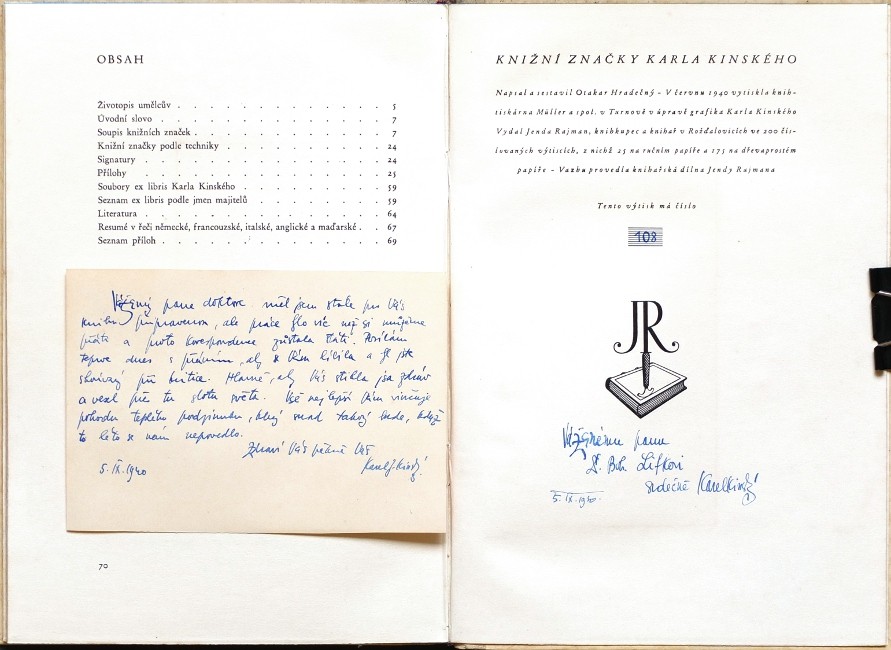 OBSAH
Životopis umělcův . . . . . . . . . . . . . 5
Úvodní slovo . . . . . . . . . . . . . . 7
Soupis knižních značek . . . . . . . . . . . . 7
Knižní značky podle techniky . . . . . . . . . . 24
Signatury . . . . . . . . . . . . . . . 24
Přílohy . . . . . . . . . . . . . . . 25
Soubory ex libris Karla Kinského . . . . . . . . . 59
Seznam ex libris podle jmen majitelů . . . . . . . . 59
Literatura . . . . . . . . . . . . . . . 64
Resumé v řeči německé, francouzské, italské, anglické a maďarské . . 67
Seznam příloh . . . . . . . . . . . . . . 69
Vážený pane doktore, měl jsem stále pro Vás
knihu připravenou, ale práce šlo víc než si můžeme
přáti a proto korespondence zůstala státi. Posílám
teprve dnes s přáním, aby se Vám líbila a
Hlavně, aby Vás stihla
Vše nejlepší Vám
pohodu teplého podzimku, který snad takový bude, když
to léto se nám nepovedlo.
Zdraví Vás pěkně Váš
5. IX. 1940
Karel Kinský
70
KNIŽNÍ ZNAČKY KARLA KINSKÉHO
Napsal a sestavil Otakar Hradečný – V červnu 1940 vytiskla knih-
tiskárna Müller a spol. v Turnově v úpravě grafika Karla Kinského
Vydal Jenda Rajman, knihkupec a knihař v Rožďalovicích ve 200 čís-
lovaných výtiscích, z nichž 25 na ručním papíře a 175 na dřevaprostém
papíře – Vazbu provedla knihařská dílna Jendy Rajmana
Tento výtisk má číslo
108
JR
Váženému panu
Dr. Boh. Lifkovi
srdečně Karel Kinský
5. IX. 1940.